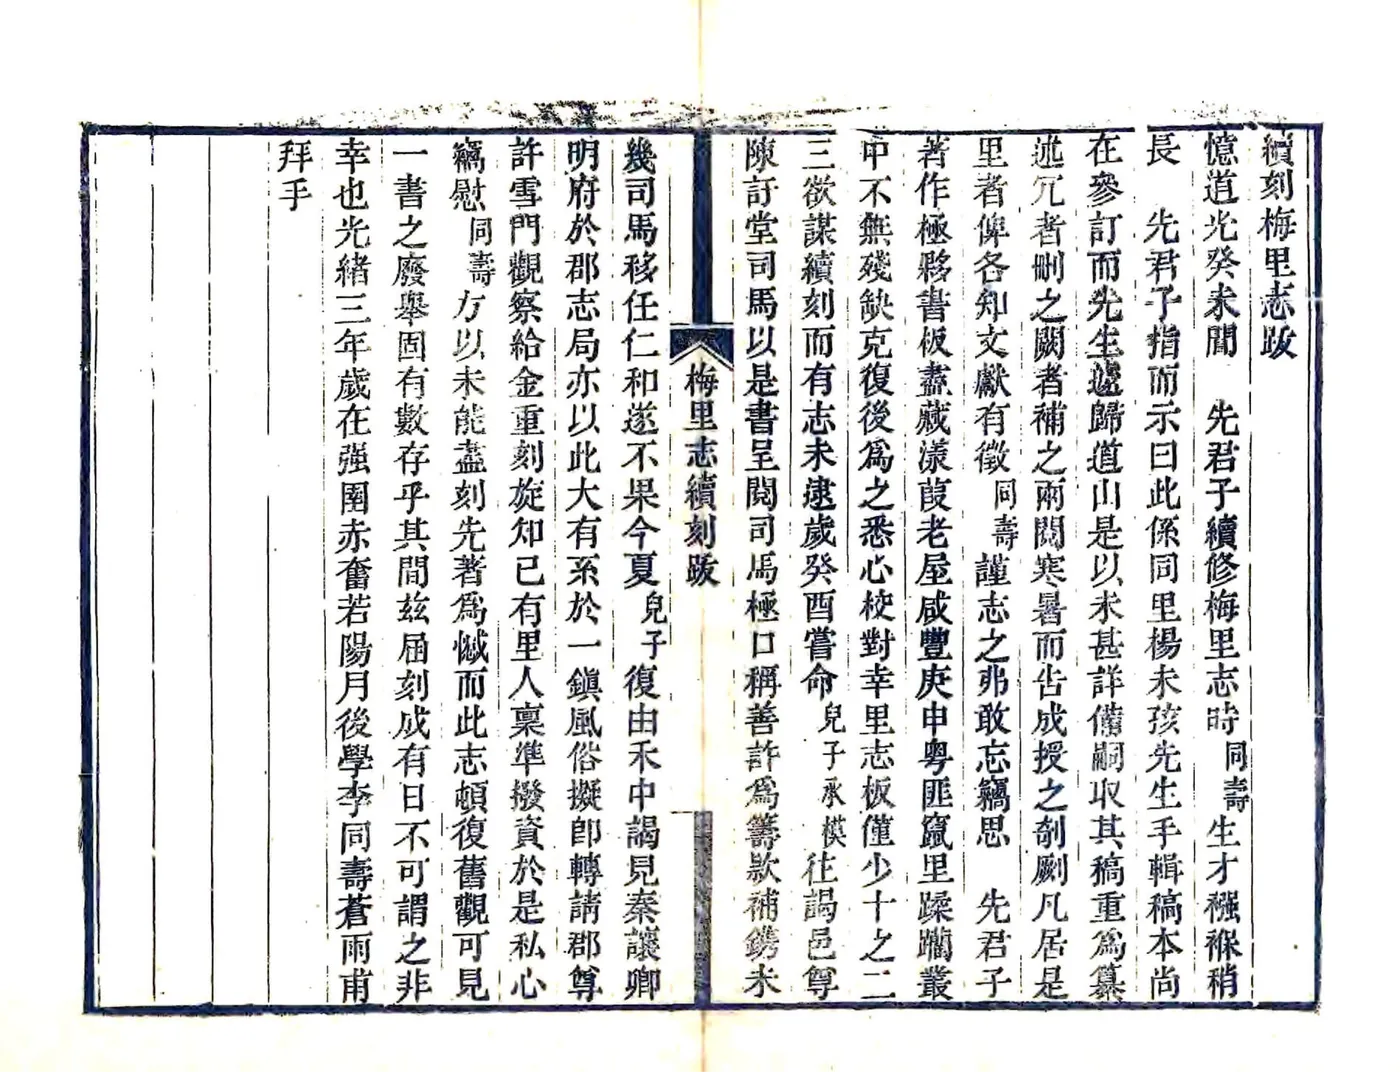 續刻梅里志跋
憶道光癸未間　先君子續修梅里志時同壽生才襁褓稍
長　先君子指而示曰此係同里楊未孩先生手輯稿本尚
在參訂而先生遽歸道山是以未甚詳備嗣取其稿重爲纂
述冗者刪之闕者補之兩閱寒暑而告成授之剞劂凡居是
里者俾各知文獻有徵同壽謹志之弗敢忘竊思　先君子
著作極夥書板盡藏漾葭老屋咸豐庚申粤匪竄里蹂躪叢
中不無殘缺克復後爲之悉心校對幸里志板僅少十之二
三欲謀續刻而有志未逮歲癸酉嘗命兒子承模往謁邑尊
陳訏堂司馬以是書呈閱司馬極口稱善許爲籌款補鐫未
梅里志續刻跋
幾司馬移任仁和遂不果今夏兒子復由禾中謁見秦讓卿
明府於郡志局亦以此大有系於一鎭風俗擬卽轉請郡尊
許雪門觀察給金重刻旋知已有里人稟準撥資於是私心
竊慰同壽方以未能盡刻先著爲憾而此志頓復舊觀可見
一書之廢舉固有數存乎其間茲屆刻成有日不可謂之非
幸也光緒三年歲在强圉赤奮若陽月後學李同壽蒼雨甫
拜手